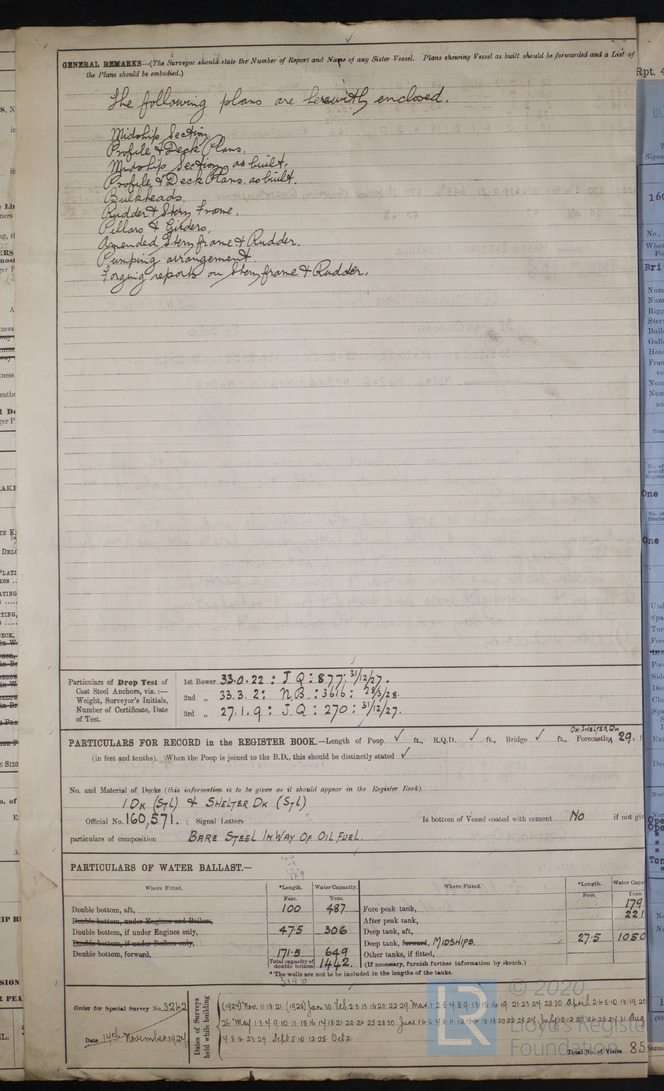 GENERAL REMARKS—(The Surveyor should state the Number of Report and Name of any Sister Vessel. Plans showing Vessel as built should be forwarded and a List of
the Plans should be embodied.)
The following plans are herewith enclosed.
Midship Section
Profile & Deck Plans.
Midship Section as built.
Profile & Deck Plans. as built.
Bulkheads.
Rudder & Stern Frame.
Pillars & Girders.
Amended Stern frame & Rudder.
Pumping arrangement.
Forging reports on Stern frame & Rudder.
Particulars of Drop Test of
Cast Steel Anchors, viz.:—
Weight, Surveyor's Initials,
Number of Certificate, Date
of Test.
1st Bower 33.0.22 : J Q : 877 : 31/12/27.
2nd „ 33.3.2 : N.B. : 3616 : 28/3/28.
3rd „ 27.1.9 : J Q : 270 : 31/12/27.
PARTICULARS FOR RECORD in the REGISTER BOOK.—Length of Poop ✓ ft., R.Q.D. ✓ ft., Bridge ✓ ft., Forecastle 29.
On Shelter Dk
(in feet and tenths). When the Poop is joined to the B.D., this should be distinctly stated ✓
No. and Material of Decks (this information is to be given as it should appear in the Register Book)
1 Dk (Stl) & Shelter Dk (Stl)
Official No. 160,571. ; Signal Letters
Is bottom of Vessel coated with cement No if not give
particulars of composition Bare Steel In Way Of Oil Fuel.
PARTICULARS OF WATER BALLAST.—
Where Fitted. *Length. Water Capacity. Where Fitted. *Length. Water Capac
Feet. Tons. Feet. Tons.
Double bottom, aft, 100 487 Fore peak tank, 179
Double bottom, under Engines and Boilers, After peak tank, 221
Double bottom, if under Engines only, 47.5 306 Deep tank, aft,
Double bottom, if under Boilers only, Deep tank, forward, MIDSHIPS. 27.5 1050
Double bottom, forward, 171.5 649 Other tanks, if fitted,
Total capacity of double bottom 1442 (If necessary, furnish further information by sketch.)
* The wells are not to be included in the lengths of the tanks.
Order for Special Survey No. 3242
Date 14th November 1927
Dates of Surveys held while building
Total No. of Visits 85
© 2020
Lloyd's Register
Foundation
LR